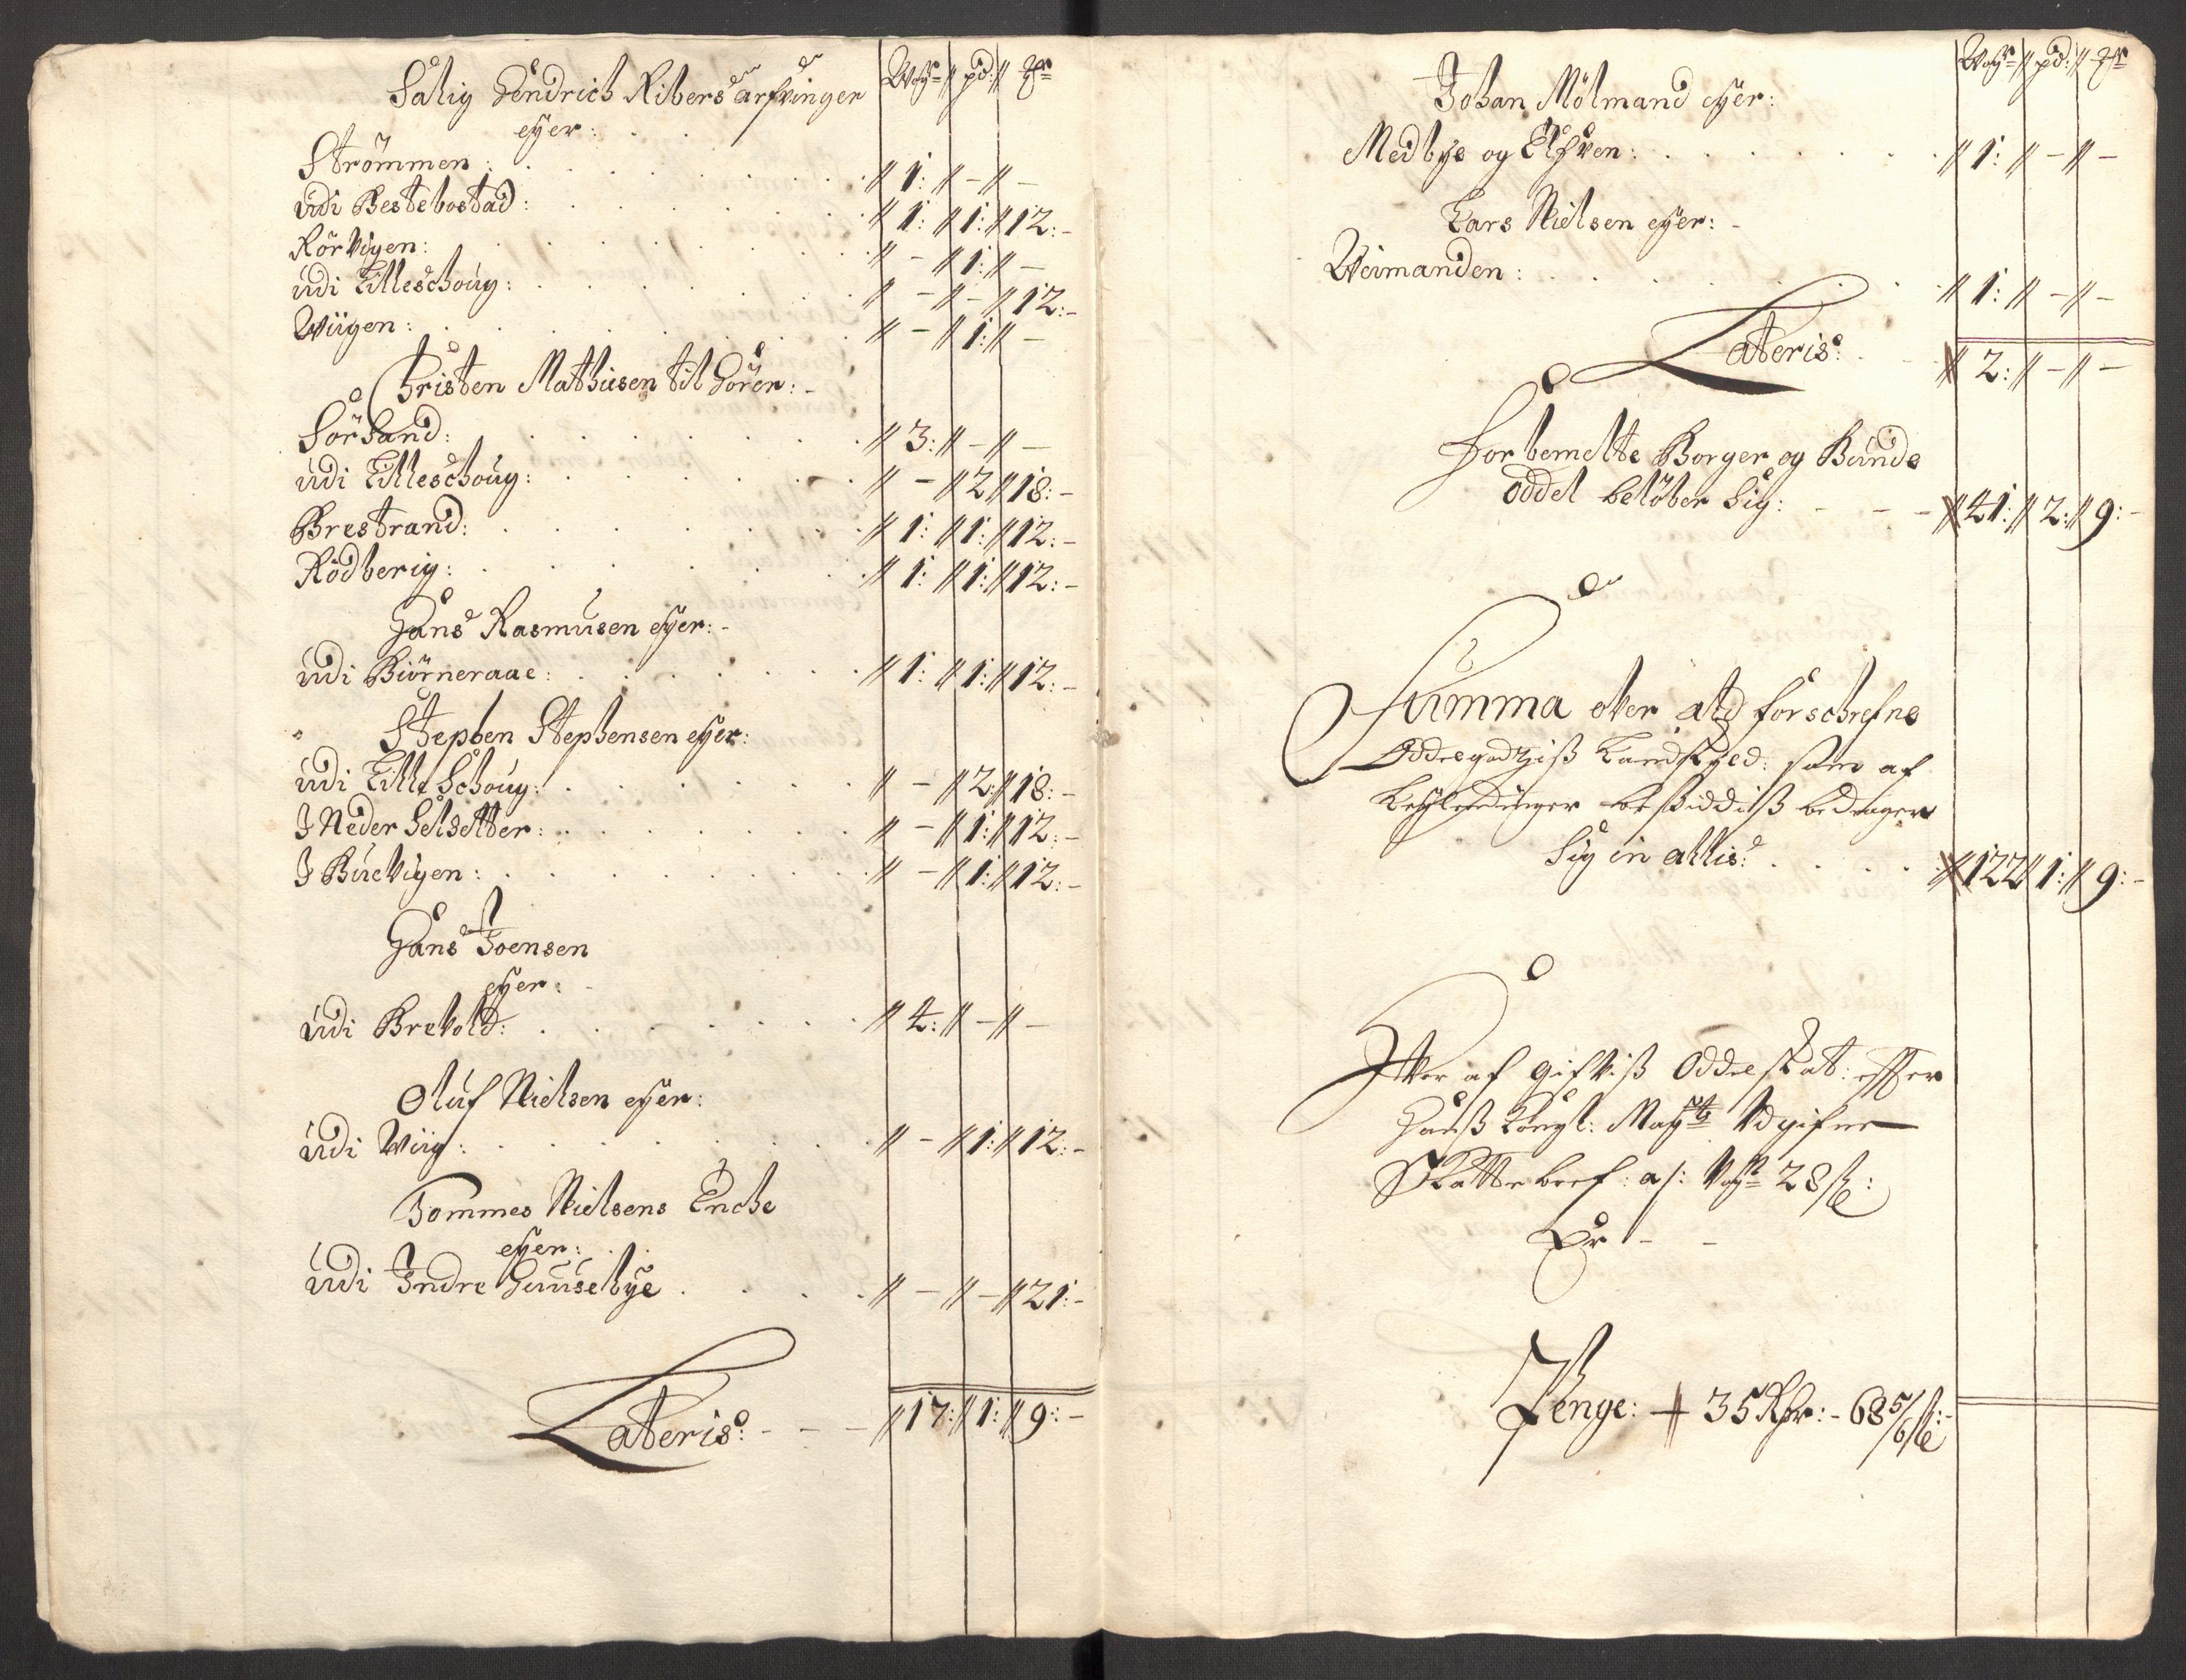 Salig Hendrich Ribers arfvinger Wog pd: 
eyer:
Strömmen: 1: - -
udi Bestebostad: 1: 1: 12:-
Rörvigen: - 1: -
udi Lilleschoug: - - 12:-
Wiigen: - 1: -
Christen Mathisen til hörer:-
Sörsand: 3: - -
udi Lilleschoug: - 2 18:-
Brestrand: 1: 1: 12:-
Rödberig: 1: 1: 12:-
Hans Rasmusen eyer:-
udi Biörneraae: 1: 1: 12:-
Stephen Stephensen eyer:
udi Lille Schoug: - 2: 18:-
J Neder Selsetter: - 1: 12:-
J Buevigen: - 1: 12:-
Hans Joensen
eyer:
udi Brevold: 4: - -
Oluf Nielsen eyer:
udi Wiig: - 1: 12:-
Tommes Nielsens Enche
eyer:
udi Indre Huusebye - - 21:-
Lateris: 17: 1: 9:-
Wog pd:
Johan Mölmand eyer:
Medbye og Elfven: 1: - -
Lars Nielsen eyer:-
Weimanden: 1: - -
Lateris: 2: - -
Forbemelte Borger og Bunde
oddel belöber Sig: 41: 2: 9:-
Summa over ald forschrefne
Oddelgodtziß Landskyld: som af
beßiddiß bedrager
Sig in allis: 122 1: 9:-
Hver af gifviß Oddelskat: effter
Hanß Kongl: May: Udgifne
Skatte bref: a/: Wog 28 ß:
Er - -
Penge: 35 Rdr:- 68 5/6 ß:-